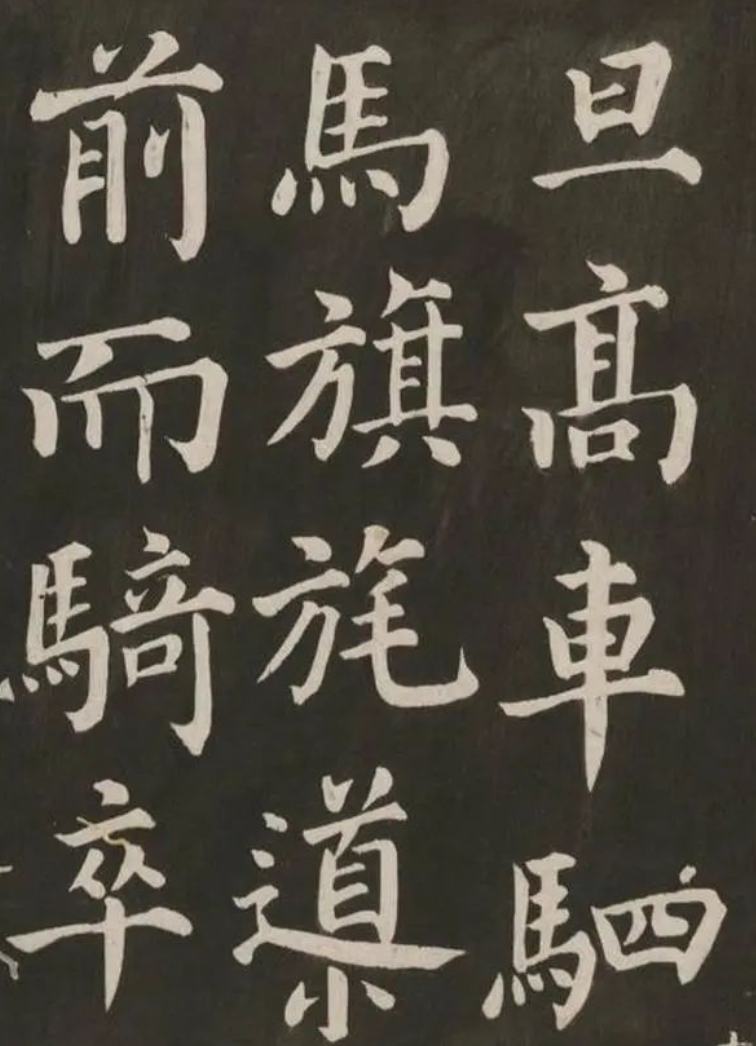 旦髙車駟
馬旗旄導
前而騎卒